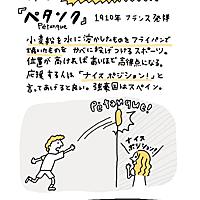 『ペタンク』 1910年 フランス発祥
Pétanque
小麦粉を水に溶かしたものをフライパンで
焼いたものを かべに投げつけるスポーツ。
位置が高ければ高いほど高得点になる。
応援する人は「ナイスポジション!」と
言ってあげると良い。強豪国はスペイン。
Pétanque!
ナイス
ポジション!